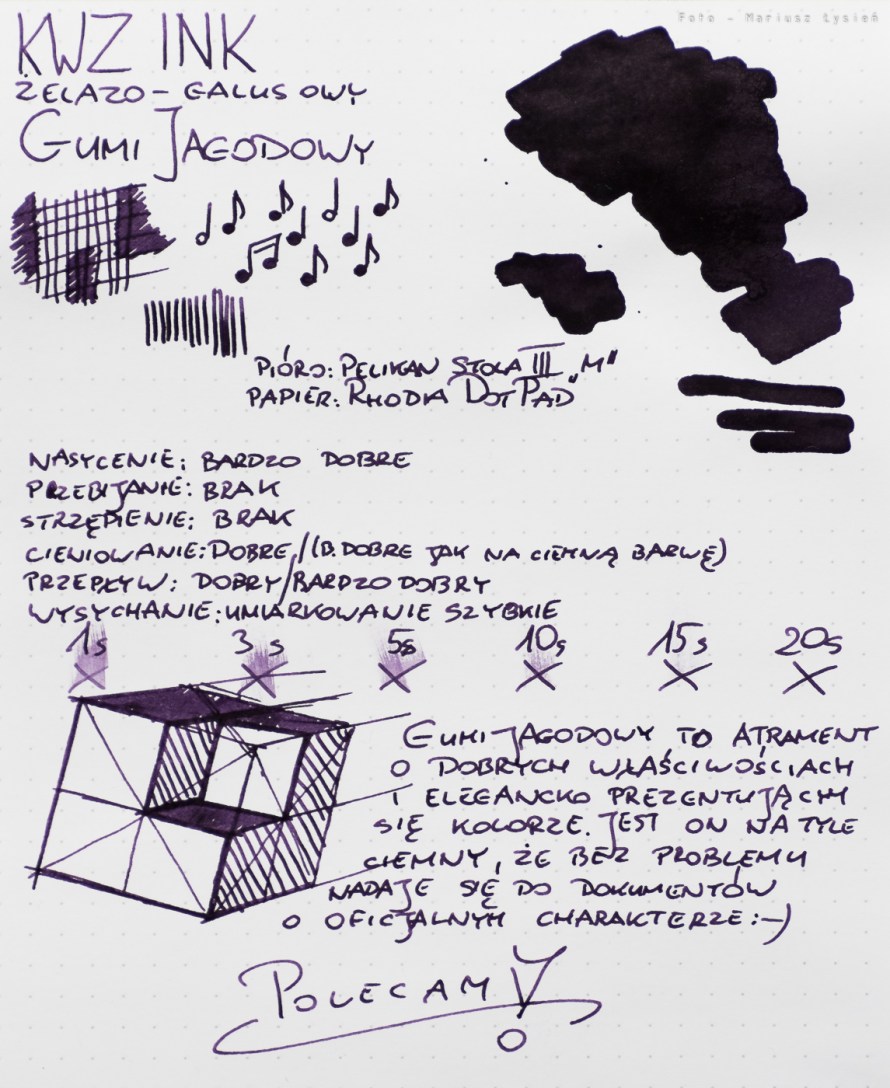 Foto - Mariusz Łysień
KWZ INK
ŻELAZO-GALUSOWY
GUMIJAGODOWY
PIÓRO: PELIKAN STOLA III „M"
PAPIER: RHODIA DOTPAD
NASYCENIE: BARDZO DOBRE
PRZEBIJANIE: BRAK
STRZĘPIENIE: BRAK
CIENIOWANIE: DOBRE/(B. DOBRE JAK NA CIEMNĄ BARWĘ)
PRZEPŁYW: DOBRY/BARDZO DOBRY
WYSYCHANIE: UMIARKOWANIE SZYBKIE
1s 3s 5s 10s 15s 20s
GUMIJAGODOWY TO ATRAMENT
O DOBRYCH WŁAŚCIWOŚCIACH
I ELEGANCKO PREZENTUJĄCYM
SIĘ KOLORZE. JEST ON NA TYLE
CIEMNY, ŻE BEZ PROBLEMU
NADAJE SIĘ DO DOKUMENTÓW
O OFICJALNYM CHARAKTERZE :-)
POLECAM!